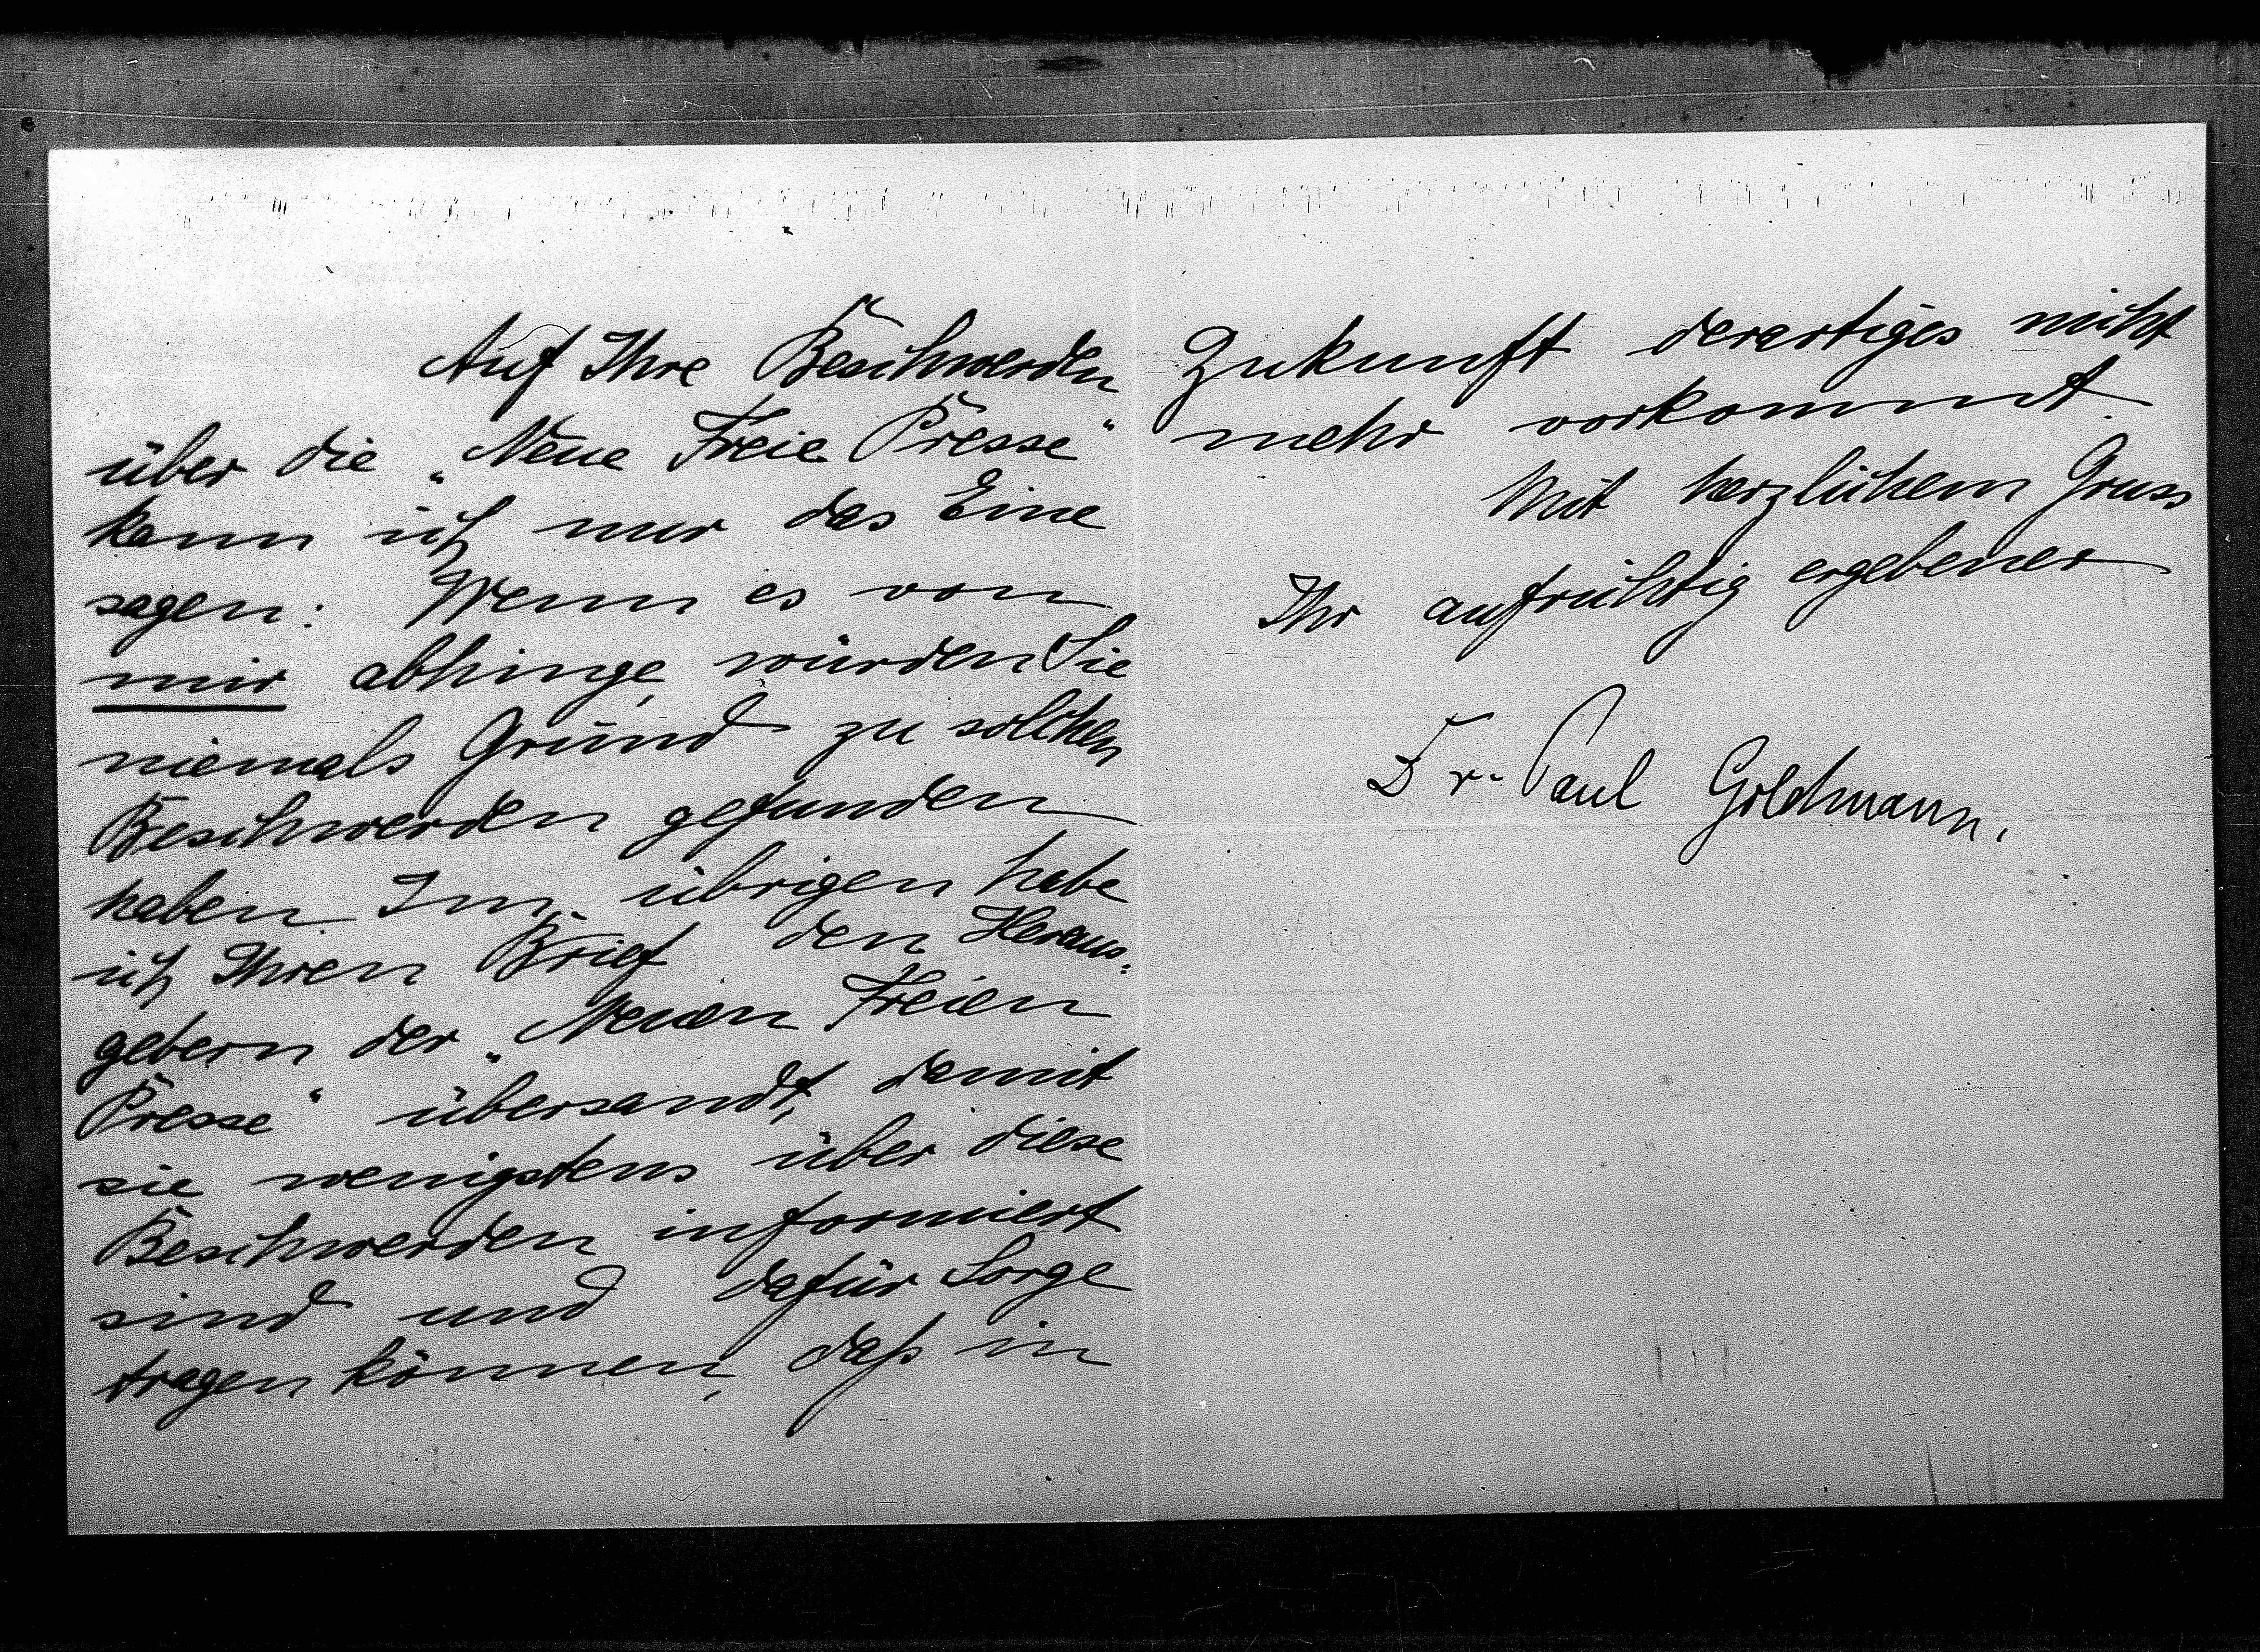 Auf Ihre Beschwerden
über die „Neue Freie Presse"
kann ich nur das Eine
sagen: Wenn es von
mir abhinge, würden Sie
niemals Grund zu solchen
Beschwerden gefunden
haben. Im übrigen habe
ich Ihren Brief den Heraus-
gebern der „Neuen Freien
Presse" übersandt, damit
sie wenigstens über diese
Beschwerden informiert
sind und dafür Sorge
tragen können, daß in
Zukunft derartiges nicht
mehr vorkommt.
Mit herzlichem Gruss
Ihr aufrichtig ergebener
Dr. Paul Goldmann.